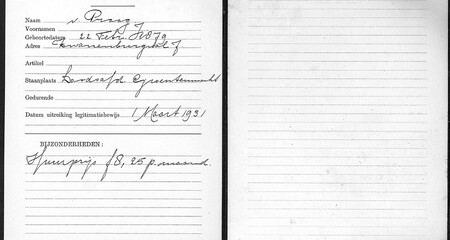 Naam v. Praag
Voornamen J
Geboortedatum 22 Febr. 1879
Adres Zwanenburgwal
Artikel
Staanplaats Groentenmarkt
Gedurende
Datum uitreiking legitimatiebewijs 1 Maart 1931
BIJZONDERHEDEN:
Huurprijs f 8,25 p. maand.